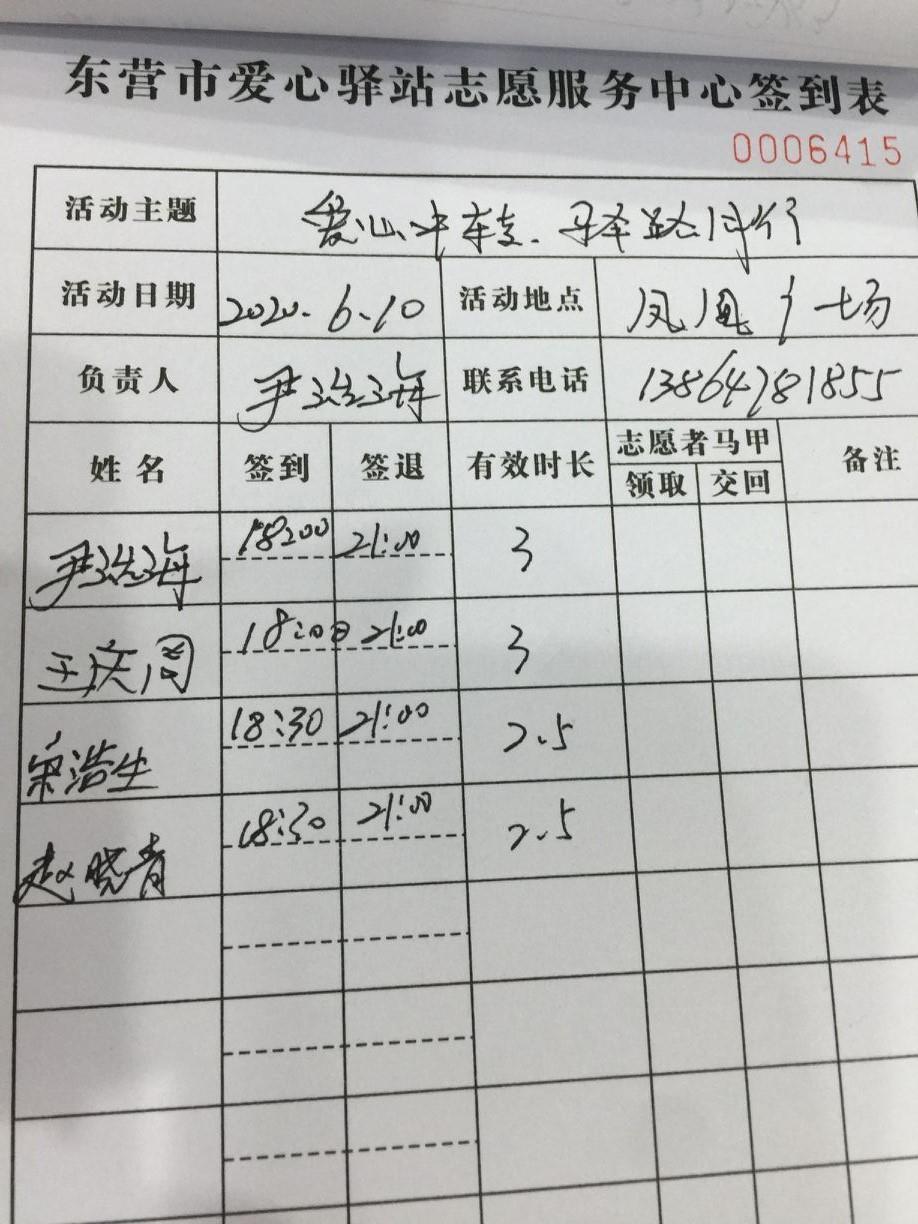 东营市爱心驿站志愿服务中心签到表
0006415
活动主题 爱心
活动日期 2020.6.10 活动地点 凤凰广场
负责人 尹浩海 联系电话 13864781855
姓名 签到 签退 有效时长 志愿者马甲 备注
领取 交回
尹浩海 18:00 21:00 3
王庆周 18:00 21:00 3
宋浩生 18:30 21:00 2.5
赵晓青 18:30 21:00 2.5